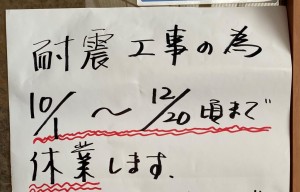 耐震工事の為
10/1 〜 12/20 頃まで
休業します.